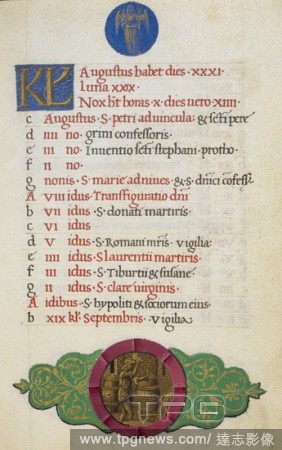 KL Augustus habet dies · XXXI·
Luna XXX·
Nox ht horas · x · dies uero · XIIII·
c Augustus · S · petri aduincula · & scti pere
d IIII no · grini confessoris·
e III no · Inuentio scti stephani · protho·
f II no·
g nonis · S · marie adniues · & · S · dnici confess·
A VIII idus · Transfiguratio dni
b VII idus · S · donati martiris·
c VI idus
d V idus · S · Romani mris · Vigilia·
e IIII idus · S laurentii martiris·
f III idus · S · Tiburtii & susane·
g II idus · S · clare uirginis·
A Idibus · S · hypoliti & sociorum eius·
b XIX kl · Septembris · Vigilia·
TPG
www.tpgnews.com/ 達志影像